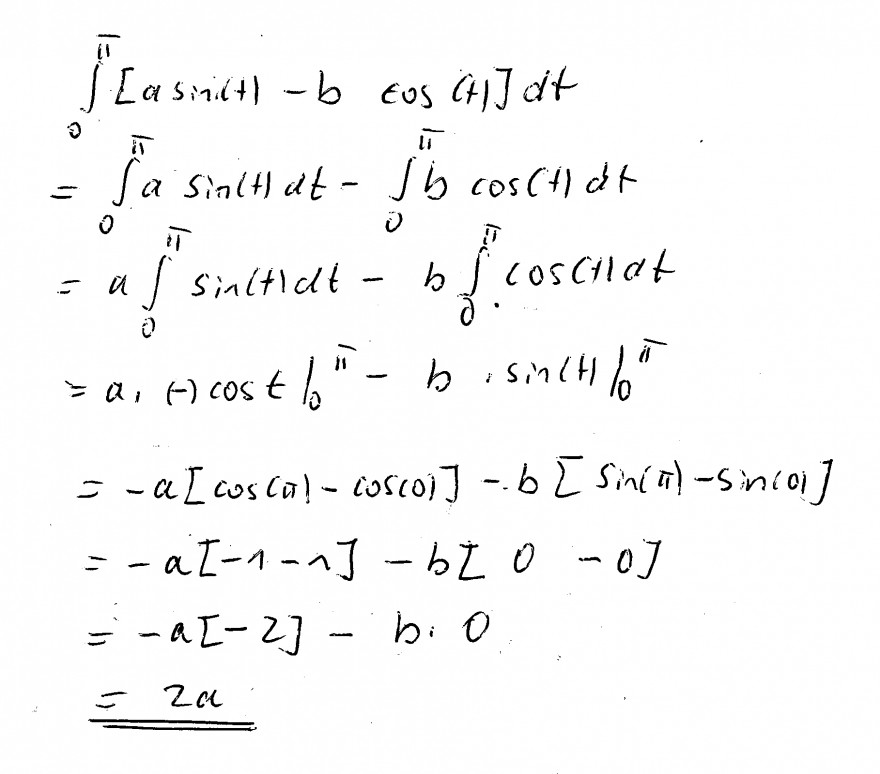 ∫₀^π [a sin(t) - b cos(t)] dt
= ∫₀^π a sin(t) dt - ∫₀^π b cos(t) dt
= a ∫₀^π sin(t) dt - b ∫₀^π cos(t) dt
= a · (-) cos t |₀^π - b · sin(t) |₀^π
= -a [cos(π) - cos(0)] - b [sin(π) - sin(0)]
= -a [-1 - 1] - b [0 - 0]
= -a [-2] - b · 0
= 2a